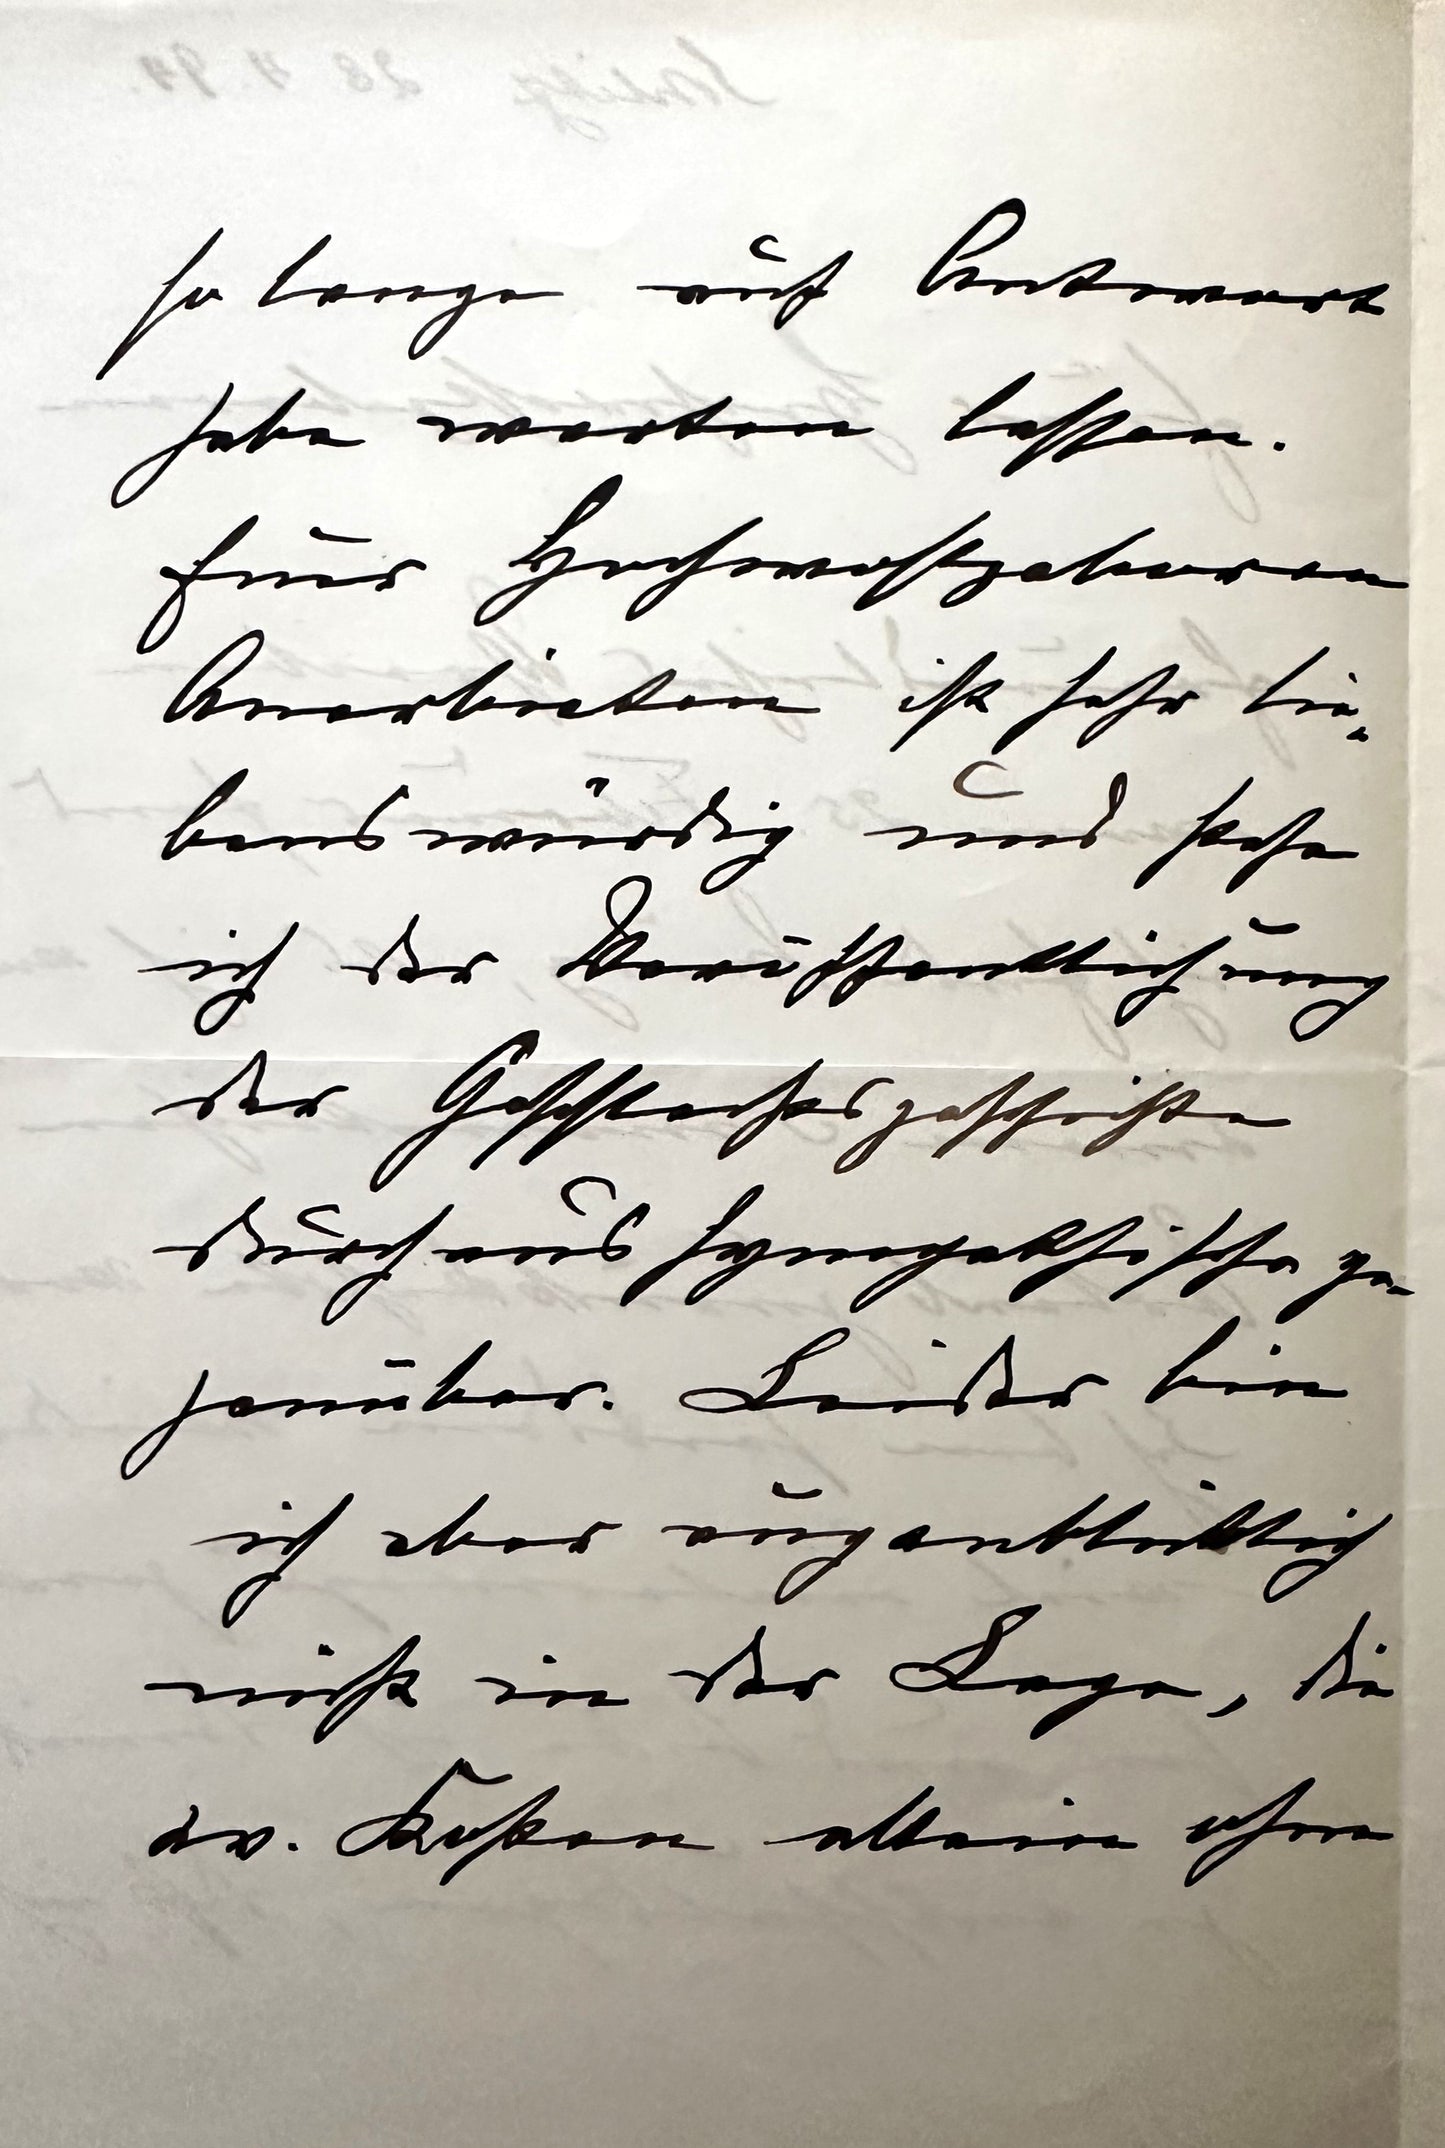 so lange auf Antwort
habe warten lassen.
Euer Hochwohlgeboren
Anerbieten ist sehr lie-
benswürdig und stehe
ich der Veröffentlichung
der Geschlechtsgeschichte
durchaus sympathisch ge-
genüber. Leider bin
ich aber augenblicklich
nicht in der Lage, die
ev. Kosten allein ohne